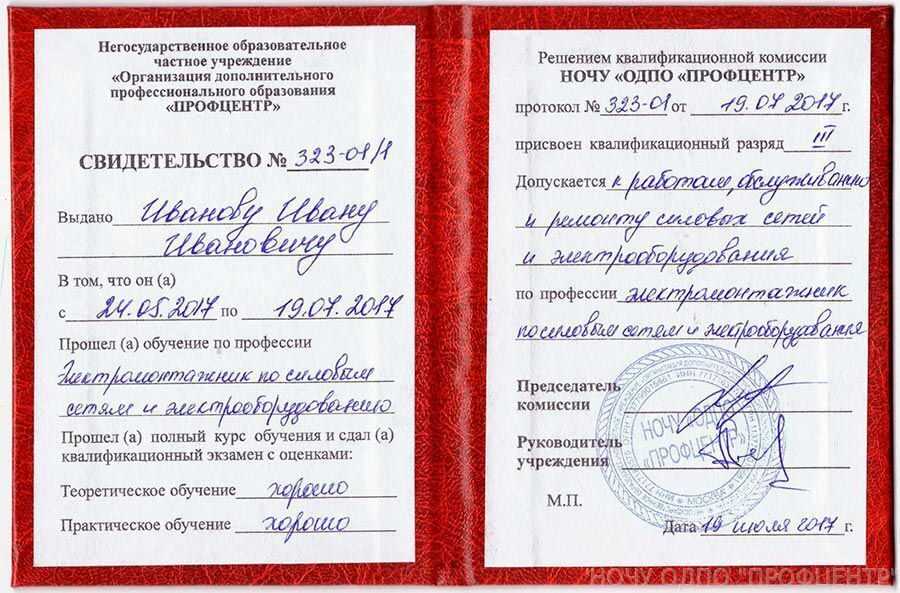 Негосударственное образовательное
частное учреждение
«Организация дополнительного
профессионального образования
«ПРОФЦЕНТР»
СВИДЕТЕЛЬСТВО № 323-01/1
Выдано Иванову Ивану
Ивановичу
В том, что он (а)
с 24.05.2017 по 19.07.2017
Прошел (а) обучение по профессии
Электромонтажник по силовым
сетям и электрооборудованию
Прошел (а) полный курс обучения и сдал (а)
квалификационный экзамен с оценками:
Теоретическое обучение хорошо
Практическое обучение хорошо
Решением квалификационной комиссии
НОЧУ «ОДПО «ПРОФЦЕНТР»
протокол № 323-01 от 19.07 2017 г.
присвоен квалификационный разряд III
Допускается к работам, обслуживанию
и ремонту силовых сетей
и электрооборудования
по профессии электромонтажник
по силовым сетям и электрооборудования
Председатель
комиссии
Руководитель
учреждения
М.П.
Дата 19 июля 2017 г.
НОЧУ «ОДПО
«ПРОФЦЕНТР»
МОСКВА
"НОЧУ ОДПО "ПРОФЦЕНТР"